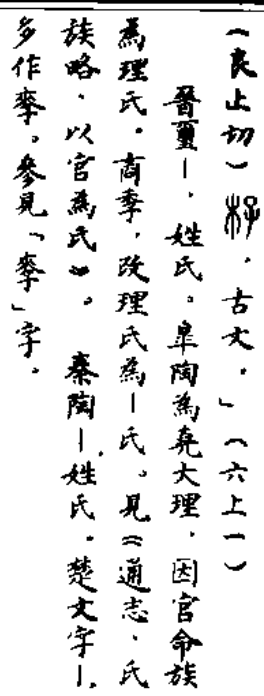 （良止切）杍，古文。」（六上一）
晉璽｜，姓氏。皐陶為堯大理，因官命族
為理氏。商季，改理氏為｜氏。見《通志·氏
族略·以官為氏》。 秦陶｜，姓氏。楚文字｜，
多作。參見「」字。